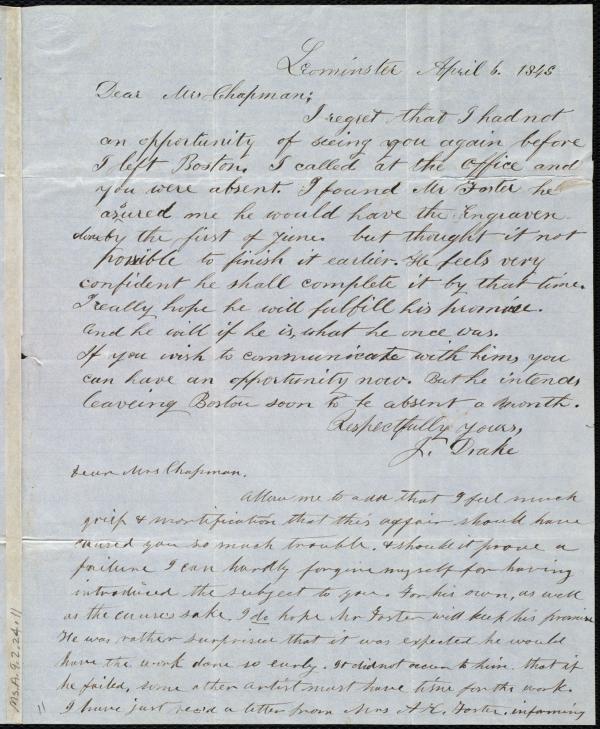 Leominster April 6. 1843
Dear Mrs Chapman;
I regret that I had not
an opportunity of seeing you again before
I left Boston. I called at the office and
you were absent. I found Mr Foster he
assured me he would have the Engraven
done by the first of June. but thought it not
possible to finish it earlier. He feels very
confident he shall complete it by that time.
I really hope he will fulfill his promise.
and he will if he is, what he once was.
If you wish to communicate with him, you
can have an opportunity now. But he intends
leaveing Boston soon to be absent a month.
Respectfully yours,
J. Drake
Dear Mrs Chapman.
Allow me to add that I feel much
grief & mortification that this affair should have
caused you so much trouble. & should it prove a
failure I can hardly forgive myself for having
introduced the subject to you. For his own, as well
as the cause's sake, I do hope Mr Foster will keep his promise
He was rather surprised that it was expected he would
have the work done so early. It did not occur to him that if
he failed, some other artist must have time for the work.
I have just rec'd a letter from Mrs A. K. Foster, informing
Ms.A.9.2.24.11
11